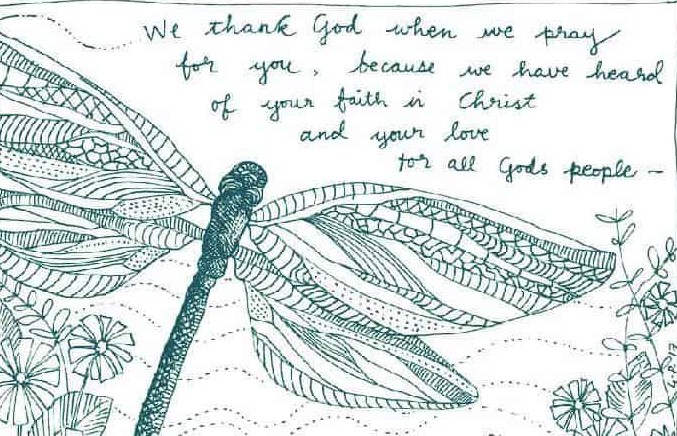 We thank God when we pray
for you, because we have heard
of your faith in Christ
and your love
for all Gods people –